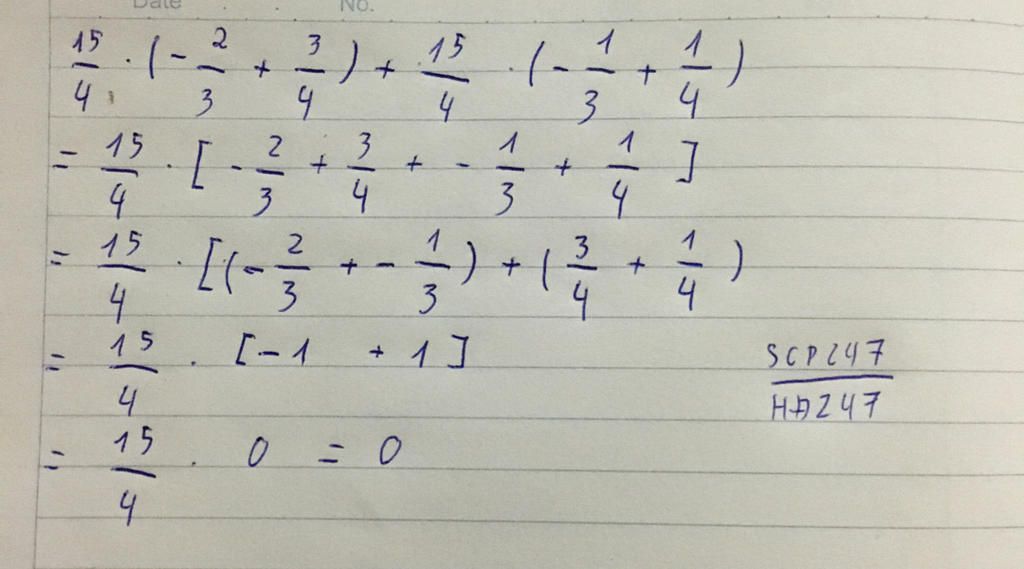 Date No.
15/4 · (-2/3 + 3/4) + 15/4 · (-1/3 + 1/4)
= 15/4 · [-2/3 + 3/4 + -1/3 + 1/4]
= 15/4 · [(-2/3 + -1/3) + (3/4 + 1/4)
= 15/4 · [-1 + 1]
= 15/4 · 0 = 0
SCP247
HD247